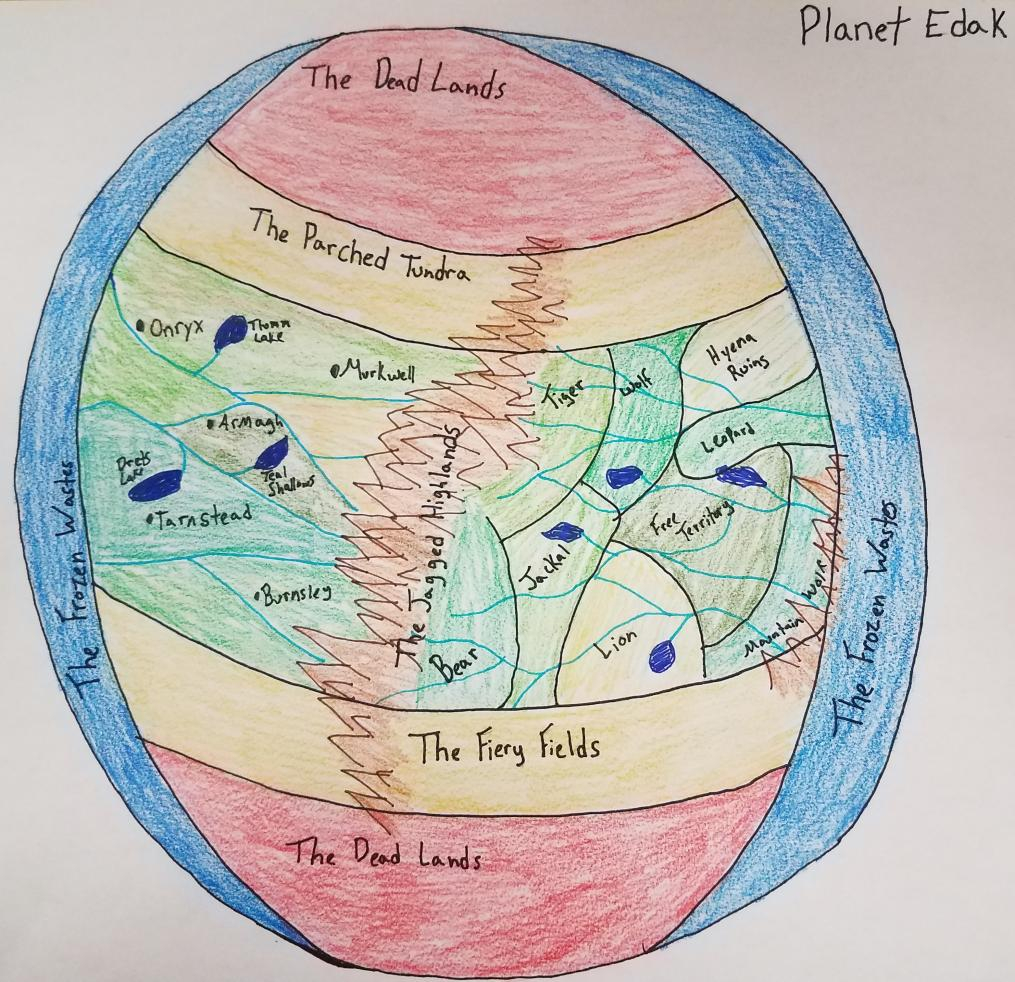 Planet Edak
The Dead Lands
The Parched Tundra
Onryx
Thorn
Lake
Murkwell
Armagh
Teal
Shallows
Drels
Lake
Tarnstead
Burnsley
The Jagged Highlands
Tiger
Wolf
Hyena
Ruins
Leopard
Free
Territory
Jackal
Lion
Bear
Mountain Wolf
The Frozen Wastes
The Frozen Wastes
The Fiery Fields
The Dead Lands